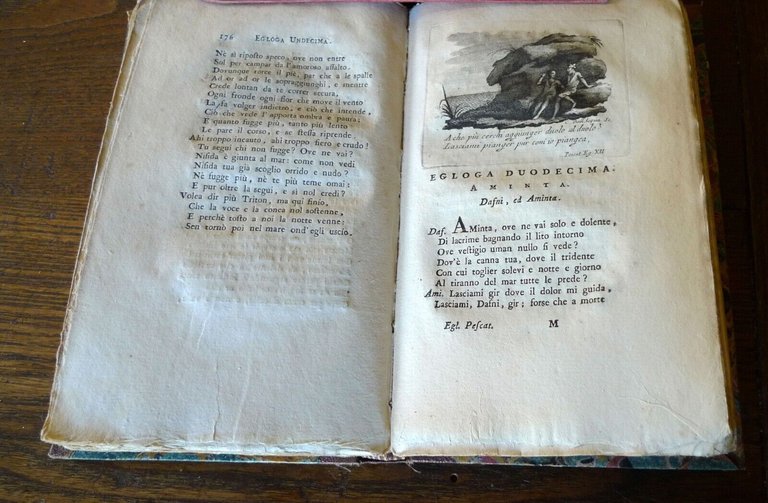 176 EGLOGA UNDECIMA.
Nè sì riposto speco, ove non entre
Sol per campar da l'amoroso assalto.
Dovunque torce il piè, par che a le spalle
Ad or ad or le sopraggiunghi, e mentre
Crede lontan da te correr secura,
Ogni fronde ogni fior che move il vento
La fa volger indietro, e ciò che intende,
Ciò che vede l'apporta ombra e paura;
E quanto fugge più, tanto più lento
Le pare il corso, e se stessa riprende:
Ahi troppo incauto, ahi troppo fiero e crudo!
Tu segui chi non fugge? Ove ne vai?
Nisida è giunta al mar: come non vedi
Nisida tua già scoglio orrido e nudo?
Nè fugge più, nè te più teme omai:
E pur oltre la segui, e sì nol credi?
Volea dir più Triton, ma qui finìo,
Che la voce e la conca nol sostenne,
E perchè tosto a noi la notte venne;
Sen tornò poi nel mare ond'egli uscìo.
A che più cerchi aggiunger duolo al duolo?
Lasciami pianger pur com'io piangea.
Egl. XII
EGLOGA DUODECIMA.
AMINTA.
Dafni, ed Aminta.
Daf. AMinta, ove ne vai solo e dolente,
Di lacrime bagnando il lito intorno
Ove vestigio uman nullo si vede?
Dov'è la canna tua, dove il tridente
Con cui toglier solevi e notte e giorno
Al tiranno del mar tutte le prede?
Ami. Lasciami gir dove il dolor mi guida,
Lasciami, Dafni, gir; forse che a morte
Egl. Pescat. M